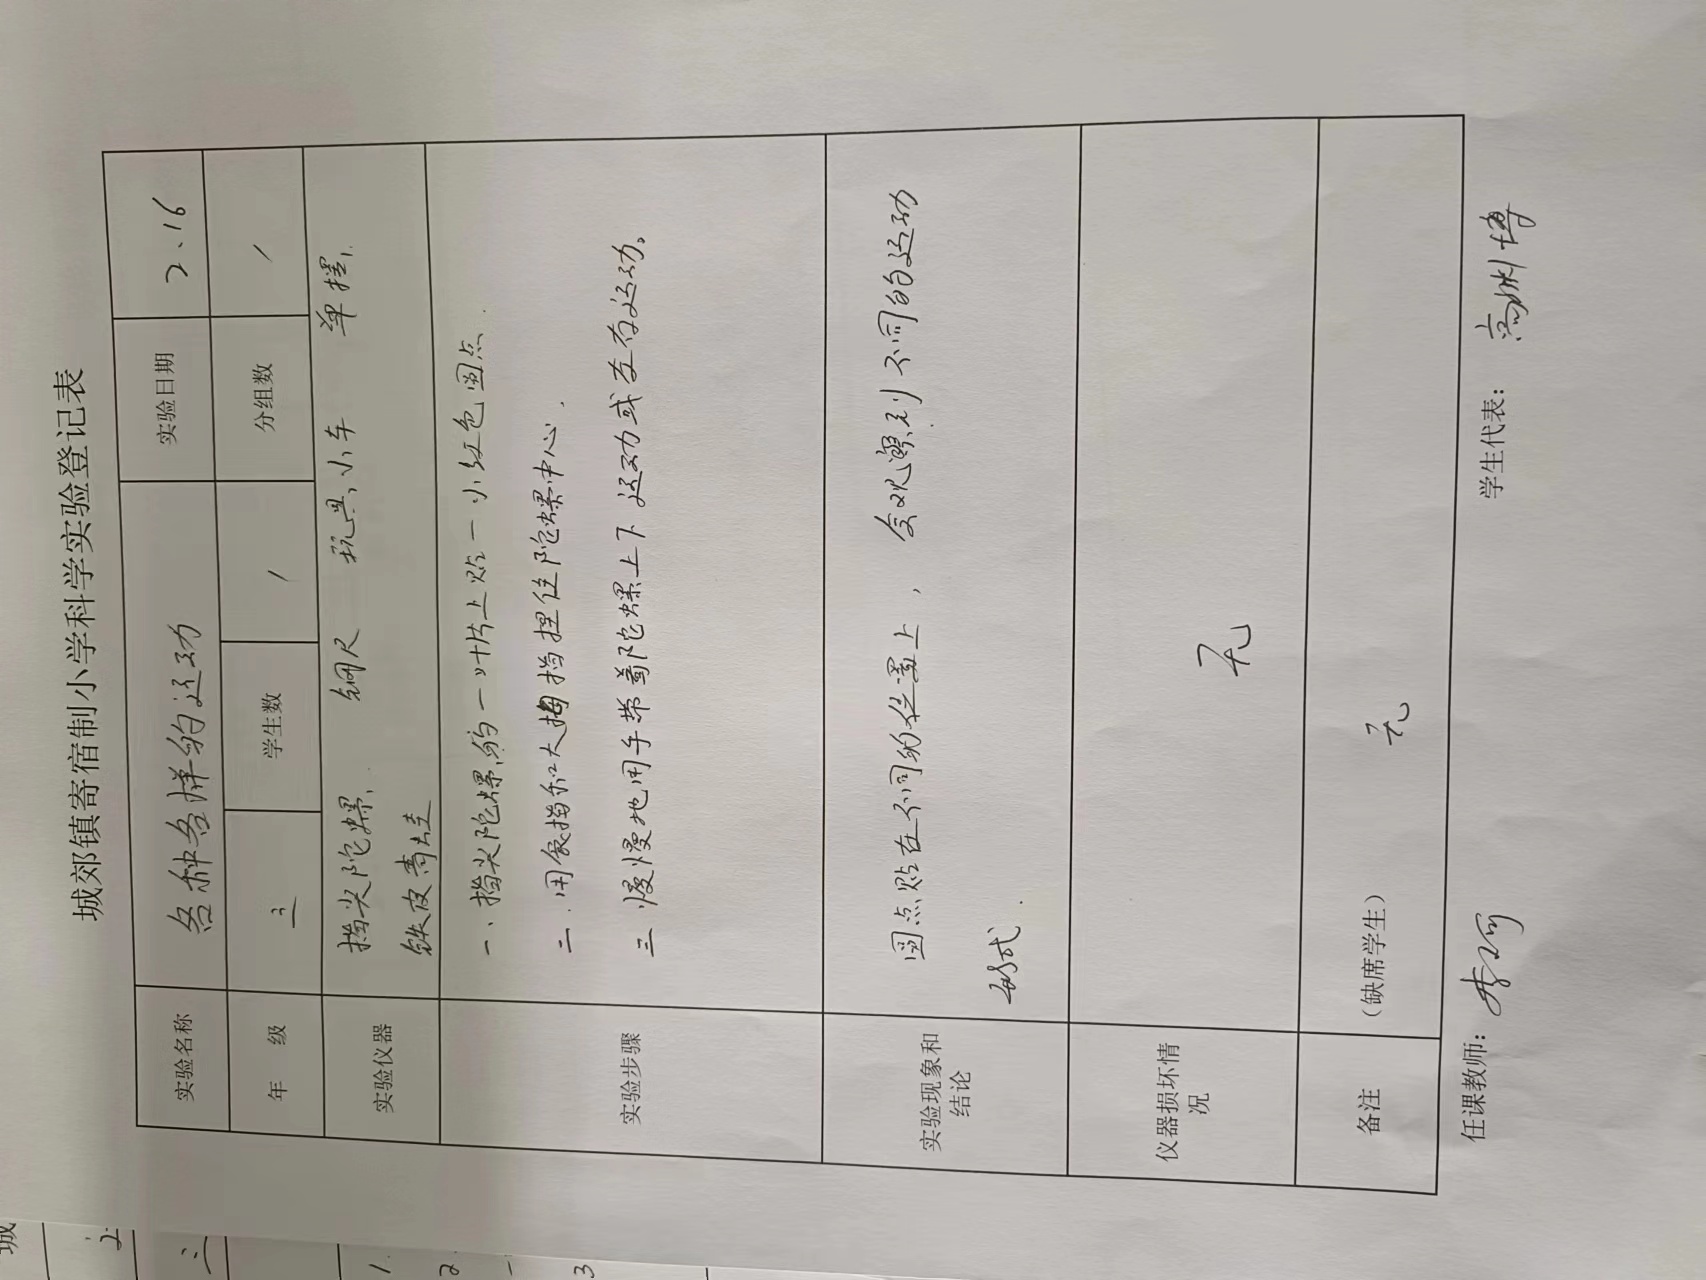 城郊镇寄宿制小学科学实验登记表
实验名称 各种各样的运动 实验日期 2.16
年 级 三 学生数 / 分组数 /
实验仪器 指尖陀螺、 钢尺 玩具小车 单摆、
铁皮青蛙
实验步骤
一、指尖陀螺的一叶片上贴一小红色圆点.
二.用食指和大拇指捏住陀螺中心.
三 慢慢地用手带着陀螺上下运动或左右运动。
实验现象和
结论
圆点贴在不同的位置上，会观察到不同的运动
形式.
仪器损坏情
况
无
备注 （缺席学生） 无
任课教师： 学生代表：
城
2.
三
1.
2
3